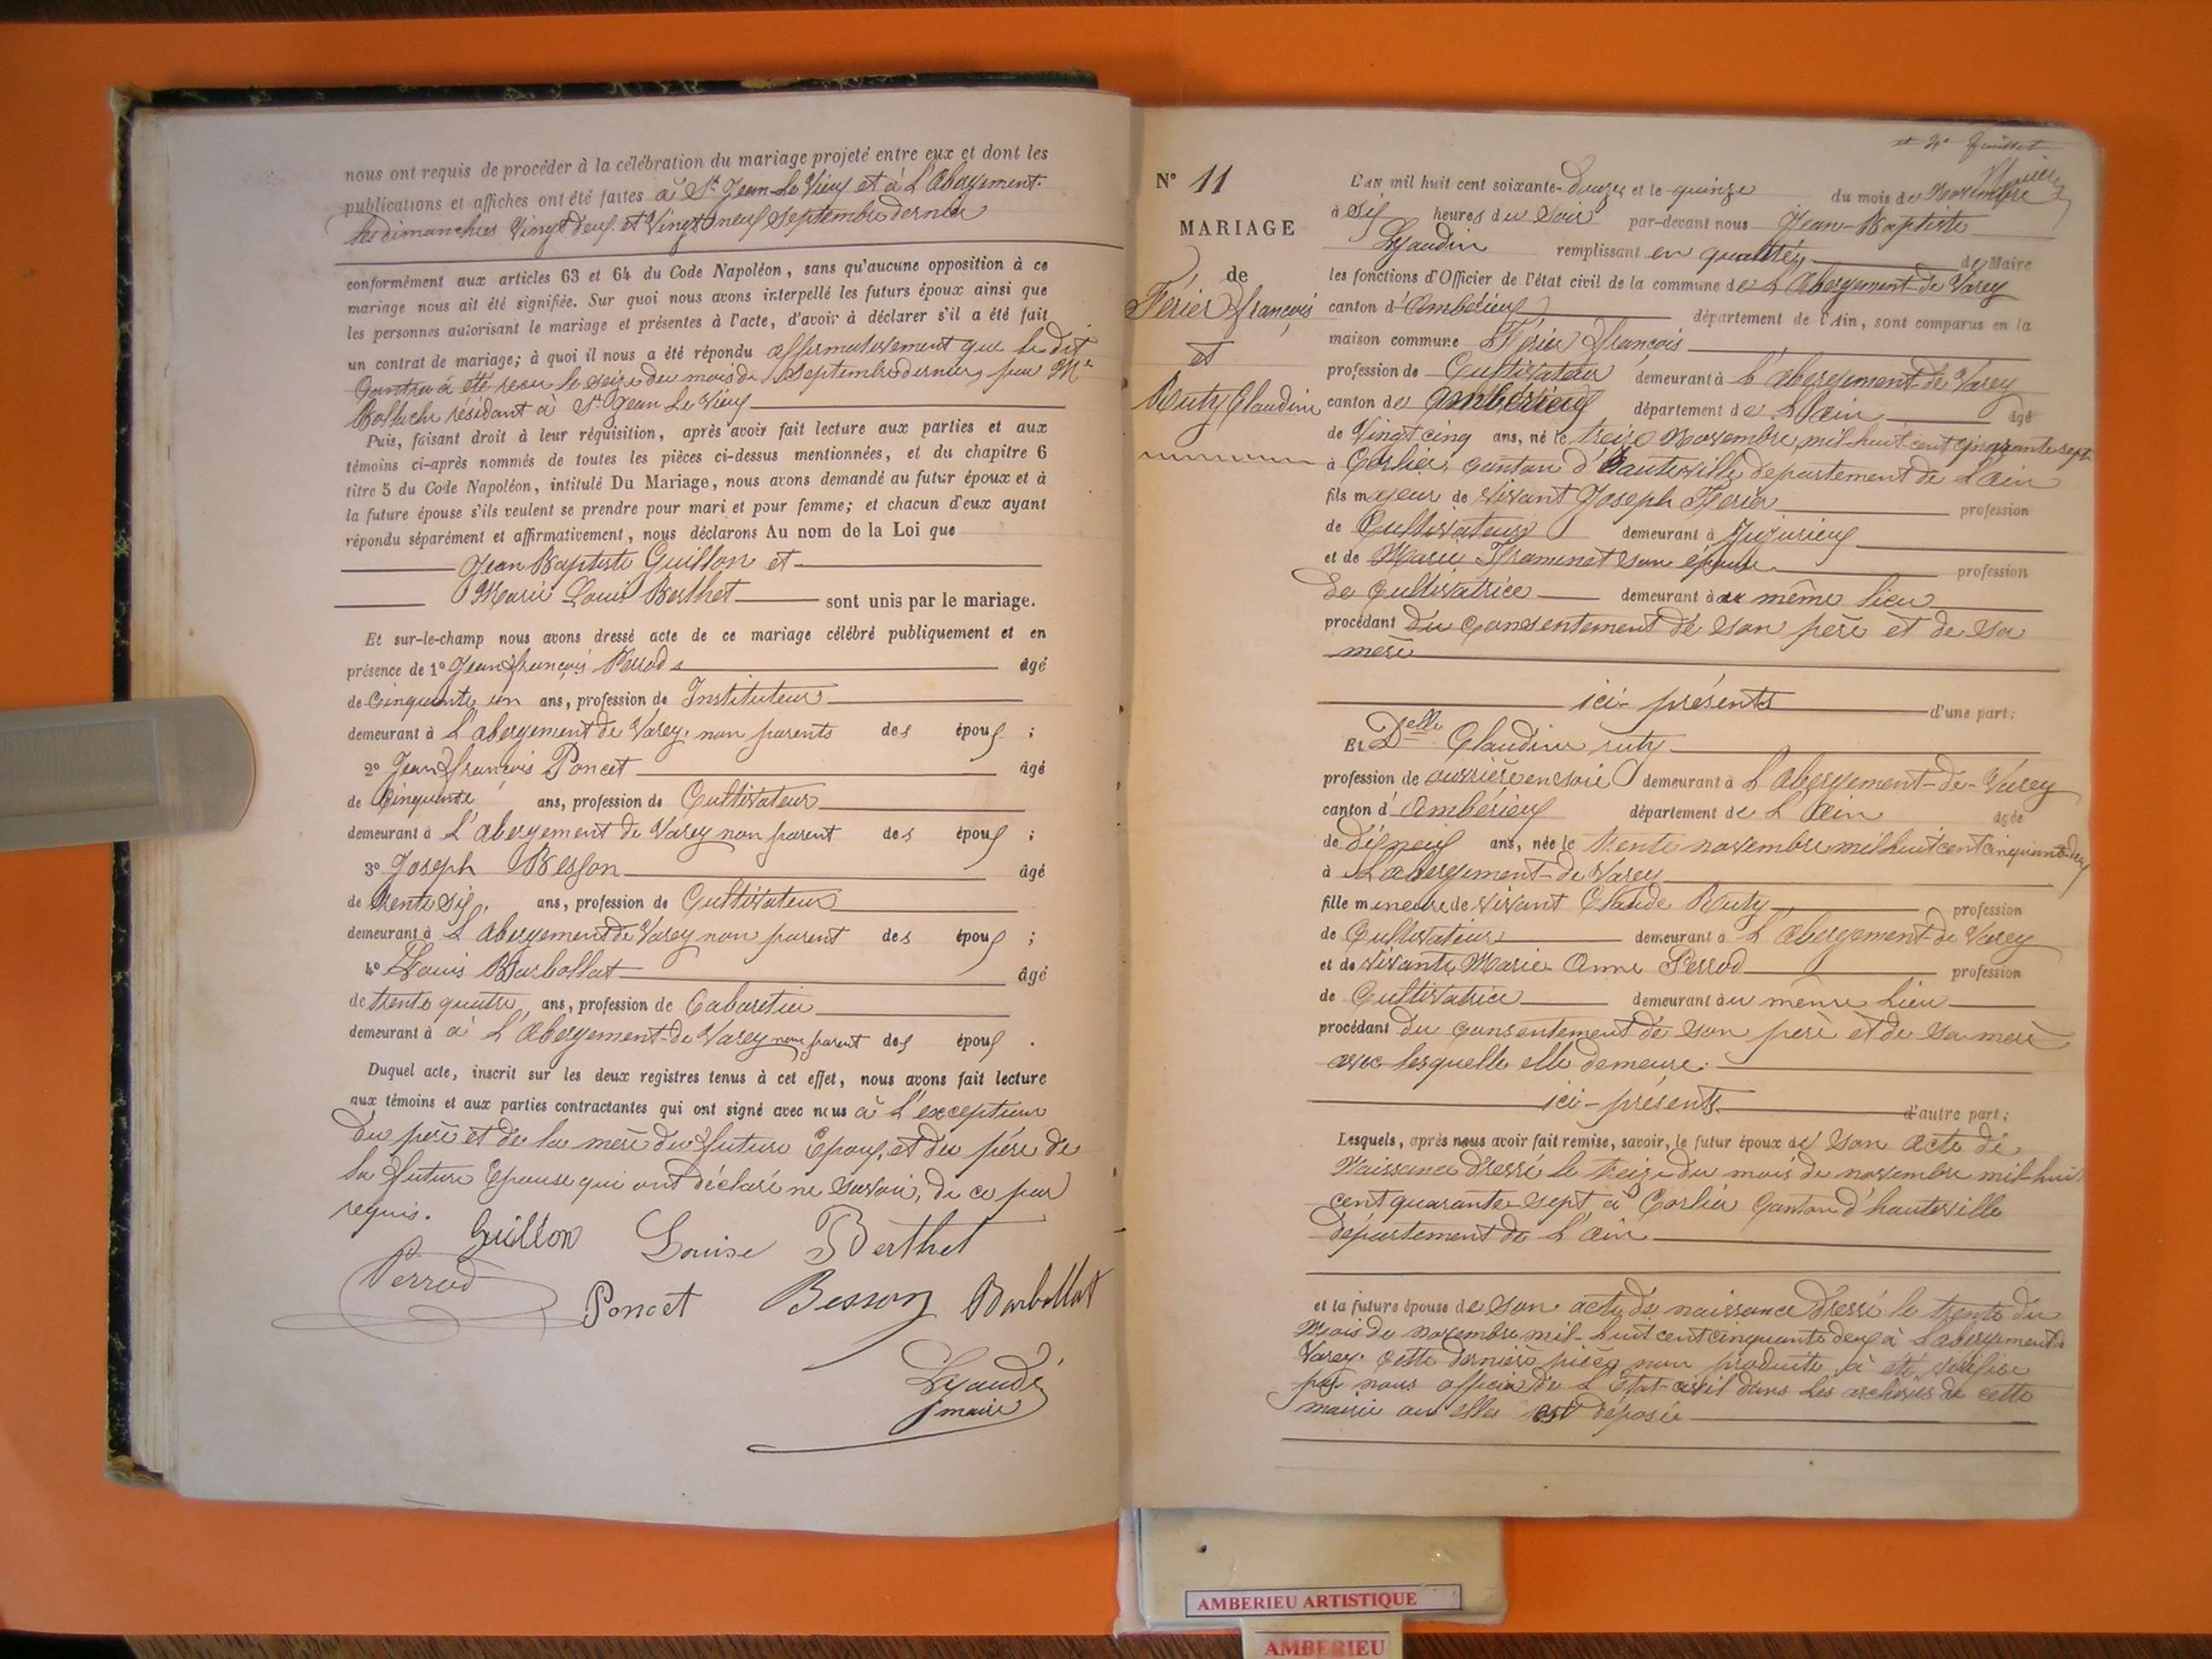 nous ont requis de procéder à la célébration du mariage projeté entre eux et dont les
publications et affiches ont été faites à St Jean Le Vieux et à L'abergement.
Les dimanches Vingt deux et Vingt neuf Septembre dernier
conformément aux articles 63 et 64 du Code Napoléon, sans qu'aucune opposition à ce
mariage nous ait été signifiée. Sur quoi nous avons interpellé les futurs époux ainsi que
les personnes autorisant le mariage et présentes à l'acte, d'avoir à déclarer s'il a été fait
un contrat de mariage; à quoi il nous a été répondu affirmativement que le dit
Contra a été reçu le seize du mois de Septembre dernier, par Me
résidant à St Jean Le Vieux
Puis, faisant droit à leur réquisition, après avoir fait lecture aux parties et aux
témoins ci-après nommés de toutes les pièces ci-dessus mentionnées, et du chapitre 6
titre 5 du Code Napoléon, intitulé Du Mariage, nous avons demandé au futur époux et à
la future épouse s'ils veulent se prendre pour mari et pour femme; et chacun d'eux ayant
répondu séparément et affirmativement, nous déclarons Au nom de la Loi que
Jean Baptiste Guillon et
Marie Louis Berthet sont unis par le mariage.
Et sur-le-champ nous avons dressé acte de ce mariage célébré publiquement et en
présence de 1° Jean françois Perrod âgé
de Cinquante un ans, profession de Instituteur
demeurant à L'abergement de Varey, non parents des époux ;
2° Jean françois Poncet âgé
de Cinquante ans, profession de Cultivateur
demeurant à L'abergement de Varey non parent des époux ;
3° Joseph Besson âgé
de trente six, ans, profession de Cultivateur
demeurant à L'abergement de Varey non parent des époux ;
4° Louis Barbollat âgé
de trente quatre, ans, profession de Cabaretier
demeurant à à L'abergement de Varey non parent des époux .
Duquel acte, inscrit sur les deux registres tenus à cet effet, nous avons fait lecture
aux témoins et aux parties contractantes qui ont signé avec nous à L'exception
du père et de la mère du future Epoux, et du père de
la future Epouse qui ont déclaré ne savoir, de ce par
requis.
Guillon Louise Berthet
Perrod Poncet Besson Barbollat
Lyaudi
maire
et 4e Juillet
N° 11
MARIAGE
de
Férier françois
et
Ruty Claudine
L'AN mil huit cent soixante-Douze, et le quinze du mois de Novembre
à Six heures du Soir par-devant nous Jean-Baptiste
Lyaudin remplissant en qualité de Maire
les fonctions d'Officier de l'état civil de la commune de L'abergement-de Varey
canton d'Ambérieux département de l'Ain, sont comparus en la
maison commune Férier françois
profession de Cultivateur demeurant à L'abergement-de Varey
canton de Ambérieux département de L'ain âgé
de Vingt cinq ans, né le treize Novembre, mil huit cent quarante sept
à Corlier, canton d'hauteville département de L'ain
fils majeur de vivant Joseph Ferier profession
de Cultivateur demeurant à Jujurieux
et de Marie Framinet son épouse profession
de Cultivatrice demeurant à au même lieu
procédant du Consentement de son père et de sa
mère
ici-présents d'une part;
Et Delle Claudine ruty
profession de ouvrière en soie demeurant à L'abergement-de-Varey
canton d'Ambérieux département de L'ain âgée
de dix neuf ans, née le trente novembre mil huit cent cinquante deux
à L'abergement-de Varey
fille mineure de vivant Claude Ruty profession
de Cultivateur demeurant à L'abergement-de Varey
et de vivante Marie Anne Perrod profession
de Cultivatrice demeurant au même lieu
procédant du consentement de son père et de sa mère
avec lesquelle elle demeure.
ici-présents d'autre part;
Lesquels, après nous avoir fait remise, savoir, le futur époux de son acte de
Naissance dressé le treize du mois de novembre mil-huit
cent quarante-sept, à Corlier Canton d'hauteville
département de L'ain
et la future épouse de son acte de naissance dressé le trente du
mois de novembre mil-huit cent cinquante deux à L'abergement de
Varey. Cette dernière pièce non produite a été vérifiée
par nous officier de L'état-civil dans les archives de cette
mairie ou elles est déposée
AMBERIEU ARTISTIQUE
AMBERIEU